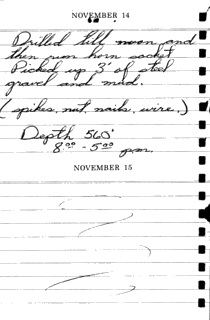 NOVEMBER 14
Drilled till noon and
then run horn socket
Picked up 3' of steel
gravel and mud.
(spikes, nut, nails, wire.)
Depth 560'
8⁰⁰ - 5⁰⁰ pm.
NOVEMBER 15